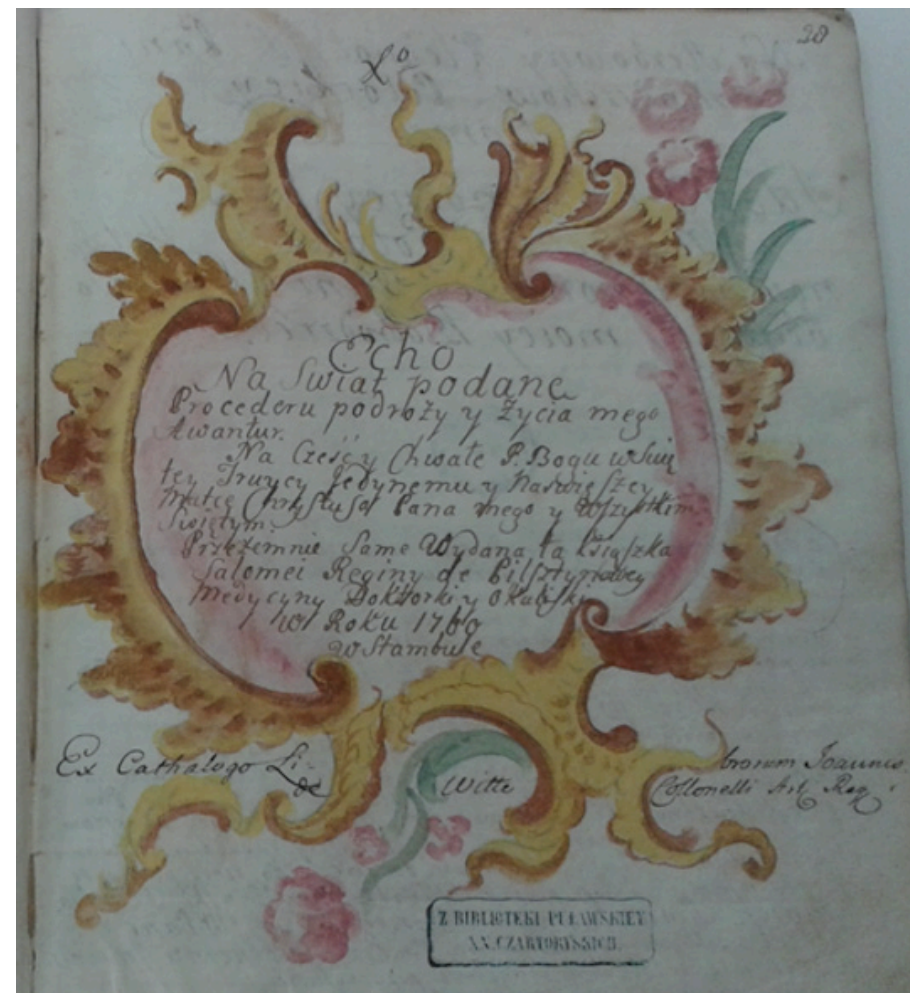 20
Lo
Echo
Na Swiat podane
Procederu podroży y Życia mego
Awantur.
Na Cześć y Chwałe P. Bogu w Swię
tey Truycy Jedynemu y Naswięszey
Matce Chrystusa Pana mego y Wszystkim
Swiętym.
Przezemnie Same Wydana ta książka
Salomei Reginy de Pilsztynowey
Medycyny Doktorki y Okulistki
w Roku 1760
w Stambule
Ex Cathalogo Li- brorum Joannis
de Witte Collonelli Art. Reg.
Z BIBLIOTEKI PUŁAWSKIEY
XX. CZARTORYSKICH.